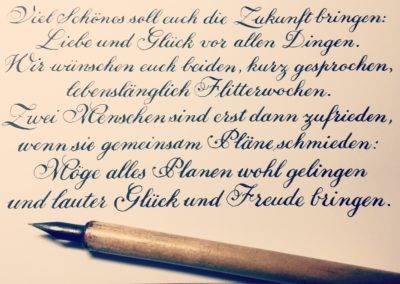 Viel Schönes soll euch die Zukunft bringen:
Liebe und Glück vor allen Dingen.
Wir wünschen euch beiden, kurz gesprochen,
lebenslänglich Flitterwochen.
Zwei Menschen sind erst dann zufrieden,
wenn sie gemeinsam Pläne schmieden:
Möge alles Planen wohl gelingen
und lauter Glück und Freude bringen.